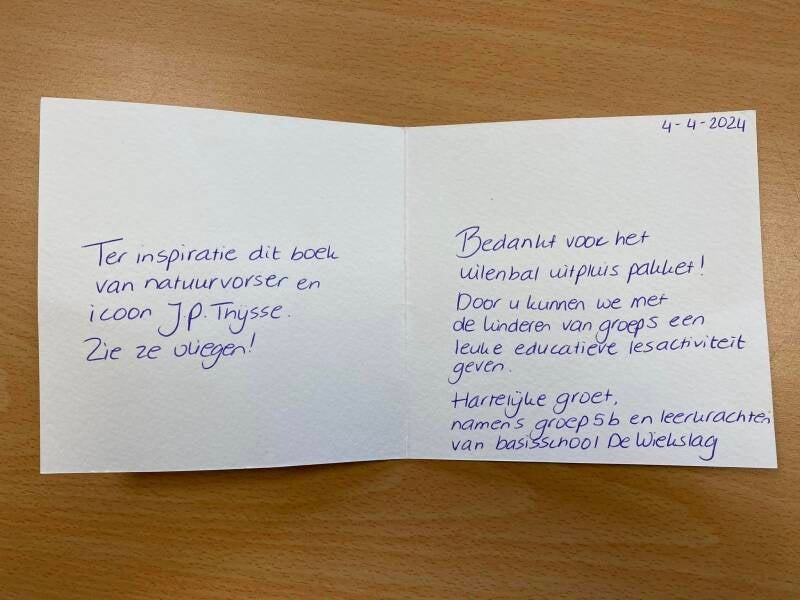 Ter inspiratie dit boek
van natuurvorser en
icoon J.P. Thijsse.
Zie ze vliegen!
4-4-2024
Bedankt voor het
uilenbal uitpluis pakket!
Door u kunnen we met
de kinderen van groep 5 een
leuke educatieve lesactiviteit
geven.
Hartelijke groet,
namens groep 5b en leerkrachten
van basisschool De Wiekslag